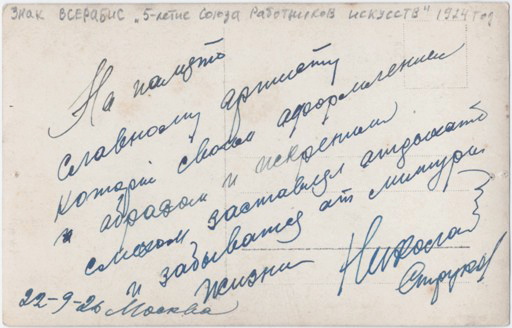 Знак Всерабис „5-летие Союза Работников искусств" 1924 год
На память
славному артисту
который своем аформлением
и абразом и искренним
смехом заставлял отдыхать
и забыватся от
жизни
Николай
22-9-26 Москва